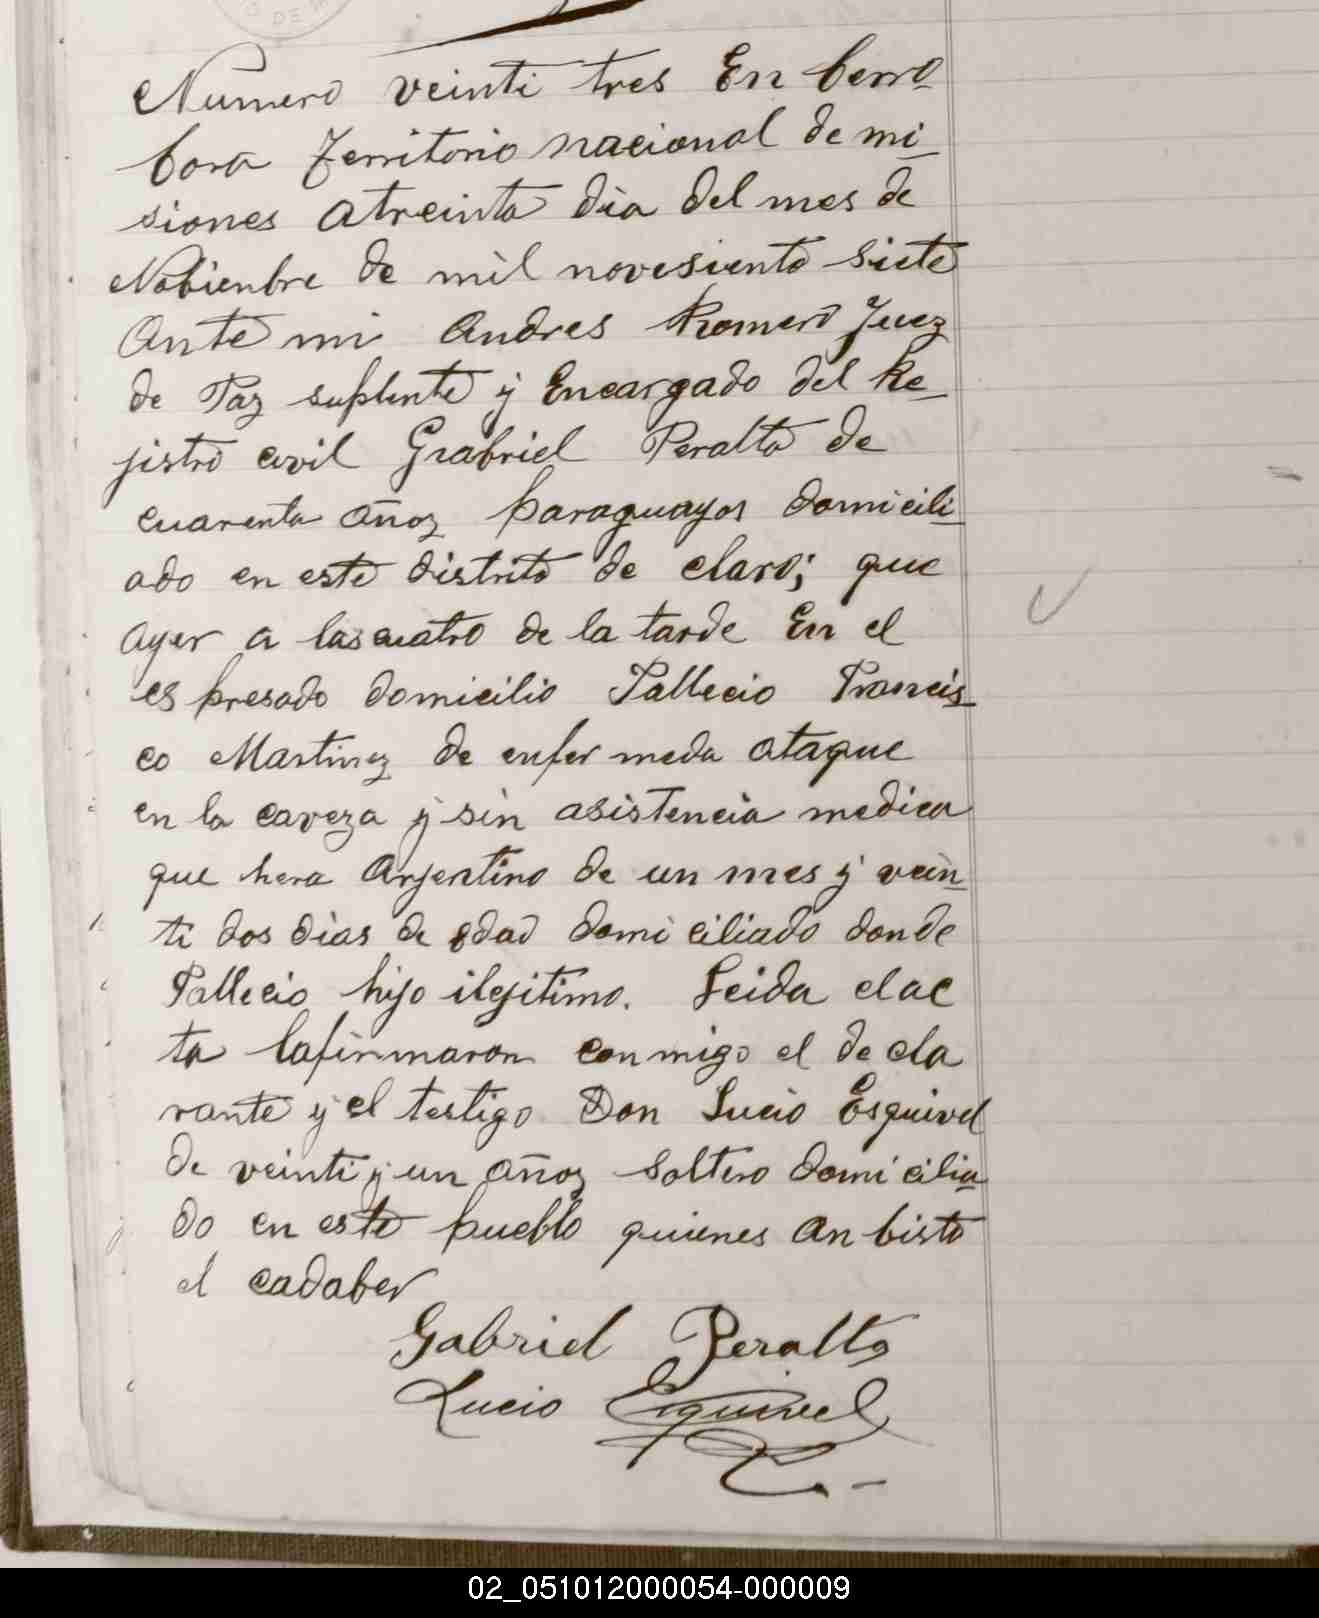 Numero veinti tres En Cerro
Corá Territorio nacional de mi_
siones a treinta dia del mes de
Nobienbre de mil novesiento siete
Ante mi Andres Romero Juez
de Paz suplente y Encargado del Re_
jistro civil Grabriel Peralta de
cuarenta años paraguayos domicili_
ado en este distrito de claro; que
ayer a las cuatro de la tarde En el
es presado domicilio Fallecio Francis_
co Martinez de enfermeda ataque
en la caveza y sin asistencia medica
que hera Arjentino de un mes y vein_
ti dos dias de edad domiciliado donde
Fallecio hijo ilejitimo. Leida el ac
ta la firmaron conmigo el decla
rante y el testigo Don Lucio Esquivel
de veinti y un años Soltero domicilia_
do en este pueblo quienes an bisto
el cadaber
Gabriel Peralta
Lucio Esquivel
02_051012000054-000009